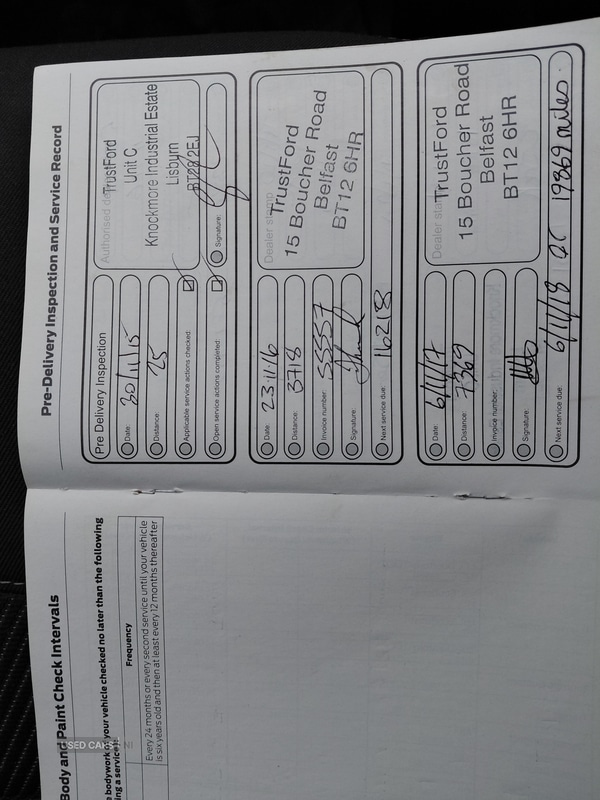 Pre-Delivery Inspection and Service Record
Pre Delivery Inspection
Date: 30/11/15
Distance: 25
Applicable service actions checked:
Open service actions completed:
TrustFord
Unit C
Knockmore Industrial Estate
Lisburn
BT28 2EJ
Signature:
Date: 23.11.16
Distance: 3718
Invoice number: 55557
Signature:
Next service due: 16218
Dealer stamp
TrustFord
15 Boucher Road
Belfast
BT12 6HR
Date: 6/11/17
Distance: 7369
Invoice number:
Signature:
Next service due: 6/11/18 or 19869 miles.
Dealer stamp
TrustFord
15 Boucher Road
Belfast
BT12 6HR
Body and Paint Check Intervals
bodywork of your vehicle checked no later than the following
Frequency
Every 24 months or every second service until your vehicle
is six years old and then at least every 12 months thereafter
USED CARS NI